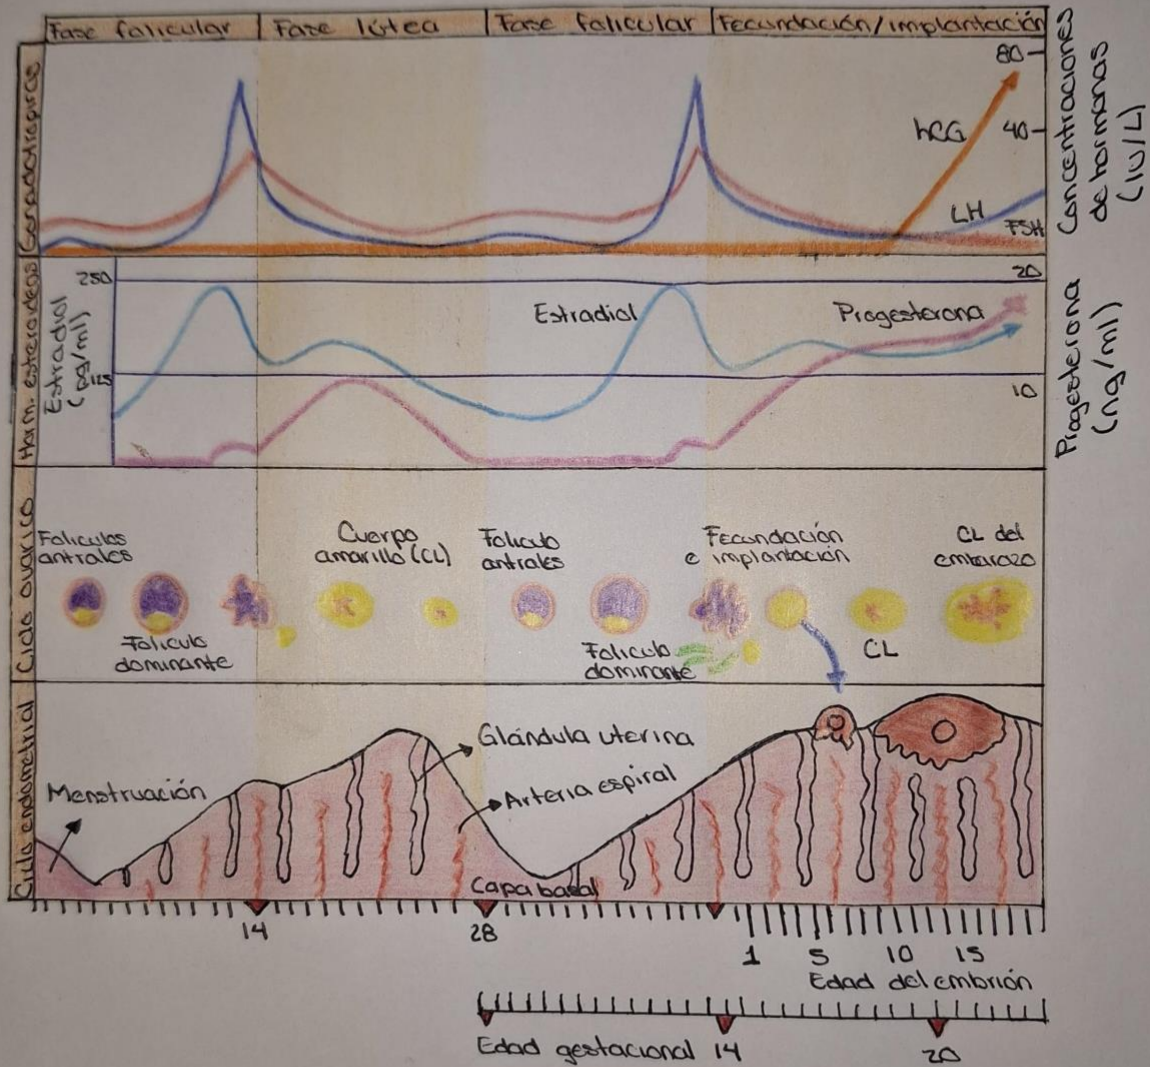 Fase folicular
Fase lútea
Fase folicular
Fecundación/implantación
Gonadotropicas
80
40
hCG
LH
FSH
Concentraciones
de hormonas
(IU/L)
Horm. esteroideas
Estradiol
(pg/ml)
250
125
Estradiol
Progesterona
20
10
Progesterona
(ng/ml)
Ciclo ovárico
Folículos
antrales
Folículo
dominante
Cuerpo
amarillo (CL)
Folículo
antrales
Folículo
dominante
Fecundación
e implantación
CL
CL del
embarazo
Ciclo endometrial
Menstruación
Glándula uterina
Arteria espiral
Capa basal
14
28
1
5
10
15
Edad del embrión
Edad gestacional
14
20